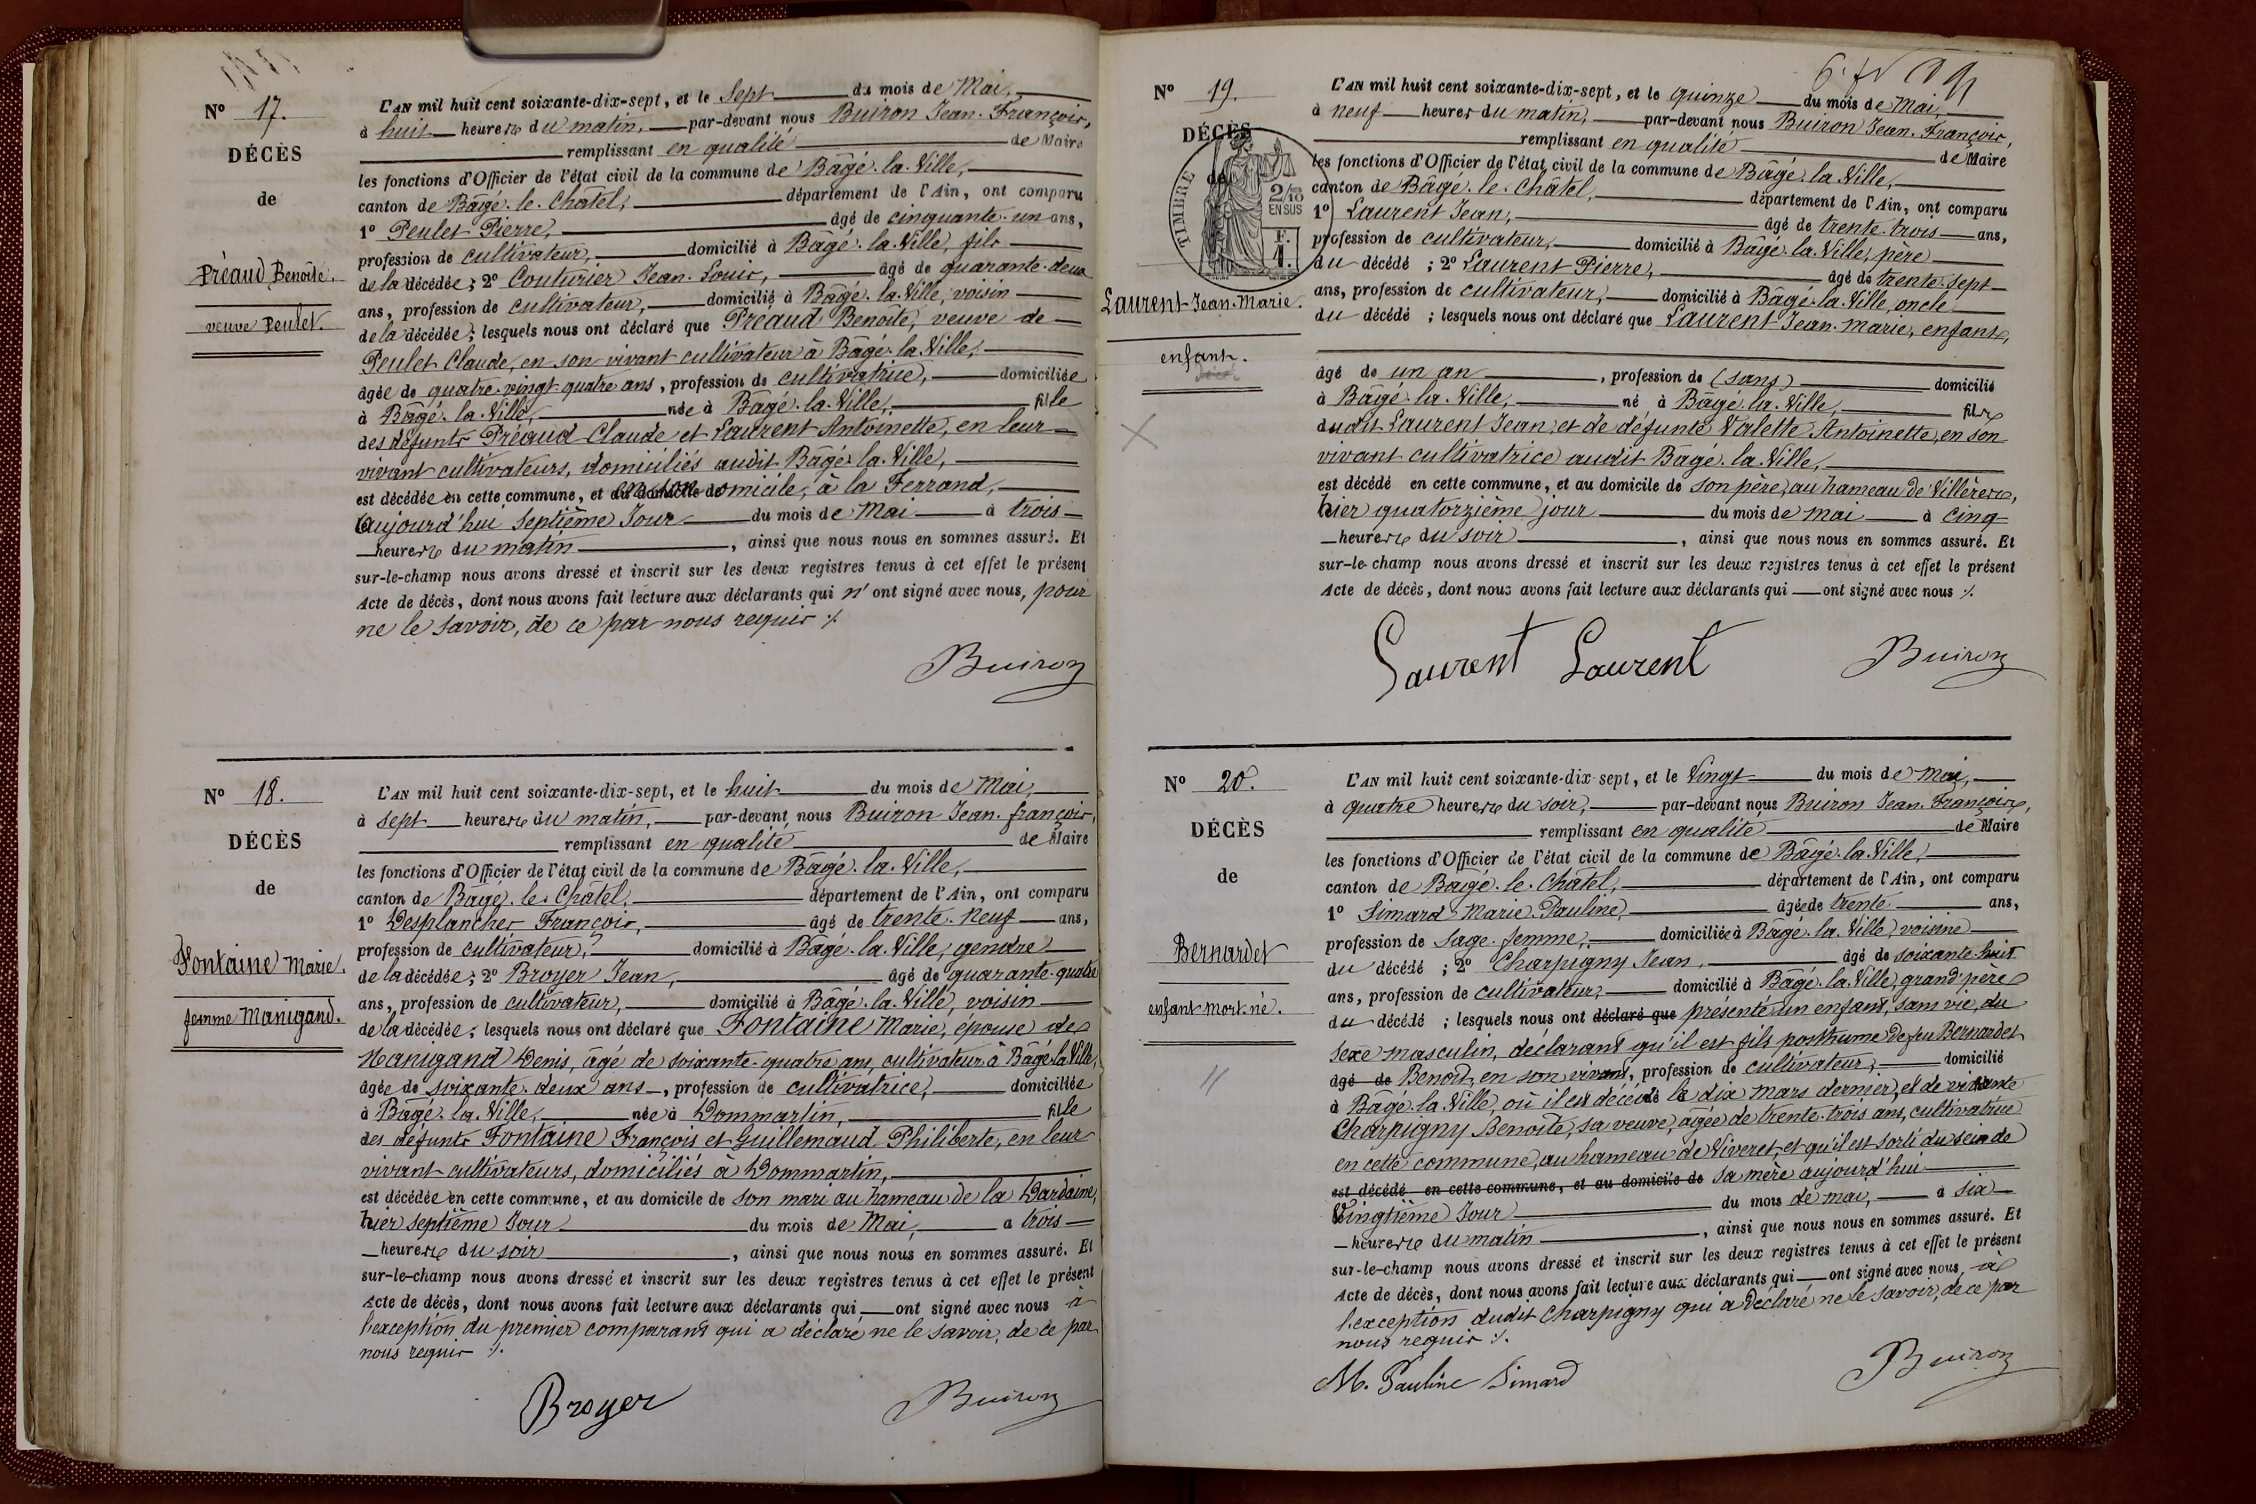 N° 17.
DÉCÈS
de
Préaud Benoîte.
veuve Peulet.
L'AN mil huit cent soixante-dix-sept, et le Sept du mois de Mai,
à huit heures du matin, par-devant nous Buiron Jean-François,
remplissant en qualité de Maire
les fonctions d'Officier de l'état civil de la commune de Bâgé-la-Ville,
canton de Bâgé-le-Châtel, département de l'Ain, ont comparu
1° Peulet Pierre, âgé de cinquante-un ans,
profession de cultivateur, domicilié à Bâgé-la-Ville, fils
de la décédée; 2° Couturier Jean-Louis, âgé de quarante-deux
ans, profession de cultivateur, domicilié à Bâgé-la-Ville, voisin
de la décédée; lesquels nous ont déclaré que Préaud Benoîte, veuve de
Peulet Claude, en son vivant cultivateur à Bâgé-la-Ville,
âgée de quatre-vingt-quatre ans, profession de cultivatrice, domiciliée
à Bâgé-la-Ville, née à Bâgé-la-Ville, fille
des défunts Préaud Claude et Laurent Antoinette, en leur
vivant cultivateurs, domiciliés audit Bâgé-la-Ville,
est décédée en cette commune, et en son domicile, à la Ferrand,
aujourd'hui septième Jour du mois de Mai à trois
heures du matin, ainsi que nous nous en sommes assuré. Et
sur-le-champ nous avons dressé et inscrit sur les deux registres tenus à cet effet le présent
Acte de décès, dont nous avons fait lecture aux déclarants qui n'ont signé avec nous, pour
ne le savoir, de ce par nous requis ⁒
Buiron
N° 18.
DÉCÈS
de
Fontaine Marie.
femme Manigand.
L'AN mil huit cent soixante-dix-sept, et le huit du mois de Mai,
à sept heures du matin, par-devant nous Buiron Jean-françois,
remplissant en qualité de Maire
les fonctions d'Officier de l'état civil de la commune de Bâgé-la-Ville,
canton de Bâgé-le-Châtel, département de l'Ain, ont comparu
1° Desplanches François, âgé de trente-neuf ans,
profession de cultivateur, domicilié à Bâgé-la-Ville, gendre
de la décédée; 2° Broyer Jean, âgé de quarante-quatre
ans, profession de cultivateur, domicilié à Bâgé-la-Ville, voisin
de la décédée; lesquels nous ont déclaré que Fontaine Marie, épouse de
Manigand Denis, âgé de soixante-quatre ans, cultivateur à Bâgé-la-Ville,
âgée de soixante-deux ans, profession de cultivatrice, domiciliée
à Bâgé-la-Ville, née à Dommartin, fille
des défunts Fontaine François et Guillemaud Philiberte, en leur
vivant cultivateurs, domiciliés à Dommartin,
est décédée en cette commune, et au domicile de son mari au hameau de la Dardaine,
hier septième Jour du mois de Mai, à trois
heures du soir, ainsi que nous nous en sommes assuré. Et
sur-le-champ nous avons dressé et inscrit sur les deux registres tenus à cet effet le présent
Acte de décès, dont nous avons fait lecture aux déclarants qui ont signé avec nous à
l'exception du premier comparant qui a déclaré ne le savoir, de ce par
nous requis ⁒
Broyer Buiron
N° 19.
DÉCÈS
de
TIMBRE
2/10
EN SUS
Laurent Jean-Marie.
enfant.
L'AN mil huit cent soixante-dix-sept, et le quinze du mois de Mai,
à neuf heures du matin, par-devant nous Buiron Jean-François,
remplissant en qualité de Maire
les fonctions d'Officier de l'état civil de la commune de Bâgé-la-Ville,
canton de Bâgé-le-Châtel, département de l'Ain, ont comparu
1° Laurent Jean, âgé de trente-trois ans,
profession de cultivateur, domicilié à Bâgé-la-Ville, père
du décédé; 2° Laurent Pierre, âgé de trente-sept
ans, profession de cultivateur, domicilié à Bâgé-la-Ville, oncle
du décédé; lesquels nous ont déclaré que Laurent Jean-Marie, enfant,
âgé de un an, profession de (sans) domicilié
à Bâgé-la-Ville, né à Bâgé-la-Ville, fils
dudit Laurent Jean, et de défunte Valette Antoinette, en son
vivant cultivatrice audit Bâgé-la-Ville,
est décédé en cette commune, et au domicile de son père, au hameau de Villères,
hier quatorzième jour du mois de mai à cinq
heures du soir, ainsi que nous nous en sommes assuré. Et
sur-le-champ nous avons dressé et inscrit sur les deux registres tenus à cet effet le présent
Acte de décès, dont nous avons fait lecture aux déclarants qui ont signé avec nous ⁒
Laurent Laurent Buiron
N° 20.
DÉCÈS
de
Bernardet
enfant mort-né.
L'AN mil huit cent soixante-dix-sept, et le Vingt du mois de mai,
à quatre heures du soir, par-devant nous Buiron Jean-François,
remplissant en qualité de Maire
les fonctions d'Officier de l'état civil de la commune de Bâgé-la-Ville,
canton de Bâgé-le-Châtel, département de l'Ain, ont comparu
1° Simard Marie-Pauline, âgée de trente ans,
profession de sage-femme, domiciliée à Bâgé-la-Ville, voisine
du décédé; 2° Charpigny Jean, âgé de soixante-huit
ans, profession de cultivateur, domicilié à Bâgé-la-Ville, grand-père
du décédé; lesquels nous ont déclaré que présenté un enfant, sans vie, du
sexe masculin, déclarant qu'il est fils posthume de feu Bernardet
âgé de Benoît, en son vivant, profession de cultivateur, domicilié
à Bâgé-la-Ville, où il est décédé le dix mars dernier, et de vivante
Charpigny Benoîte, sa veuve, âgée de trente-trois ans, cultivatrice
en cette commune, au hameau de Viveret, et qu'il est sorti du sein de
est décédé en cette commune, et au domicile de sa mère aujourd'hui
Vingtième Jour du mois de mai, à six
heures du matin, ainsi que nous nous en sommes assuré. Et
sur-le-champ nous avons dressé et inscrit sur les deux registres tenus à cet effet le présent
Acte de décès, dont nous avons fait lecture aux déclarants qui ont signé avec nous, à
l'exception dudit Charpigny qui a déclaré ne le savoir, de ce par
nous requis ⁒
M. Pauline Simard Buiron